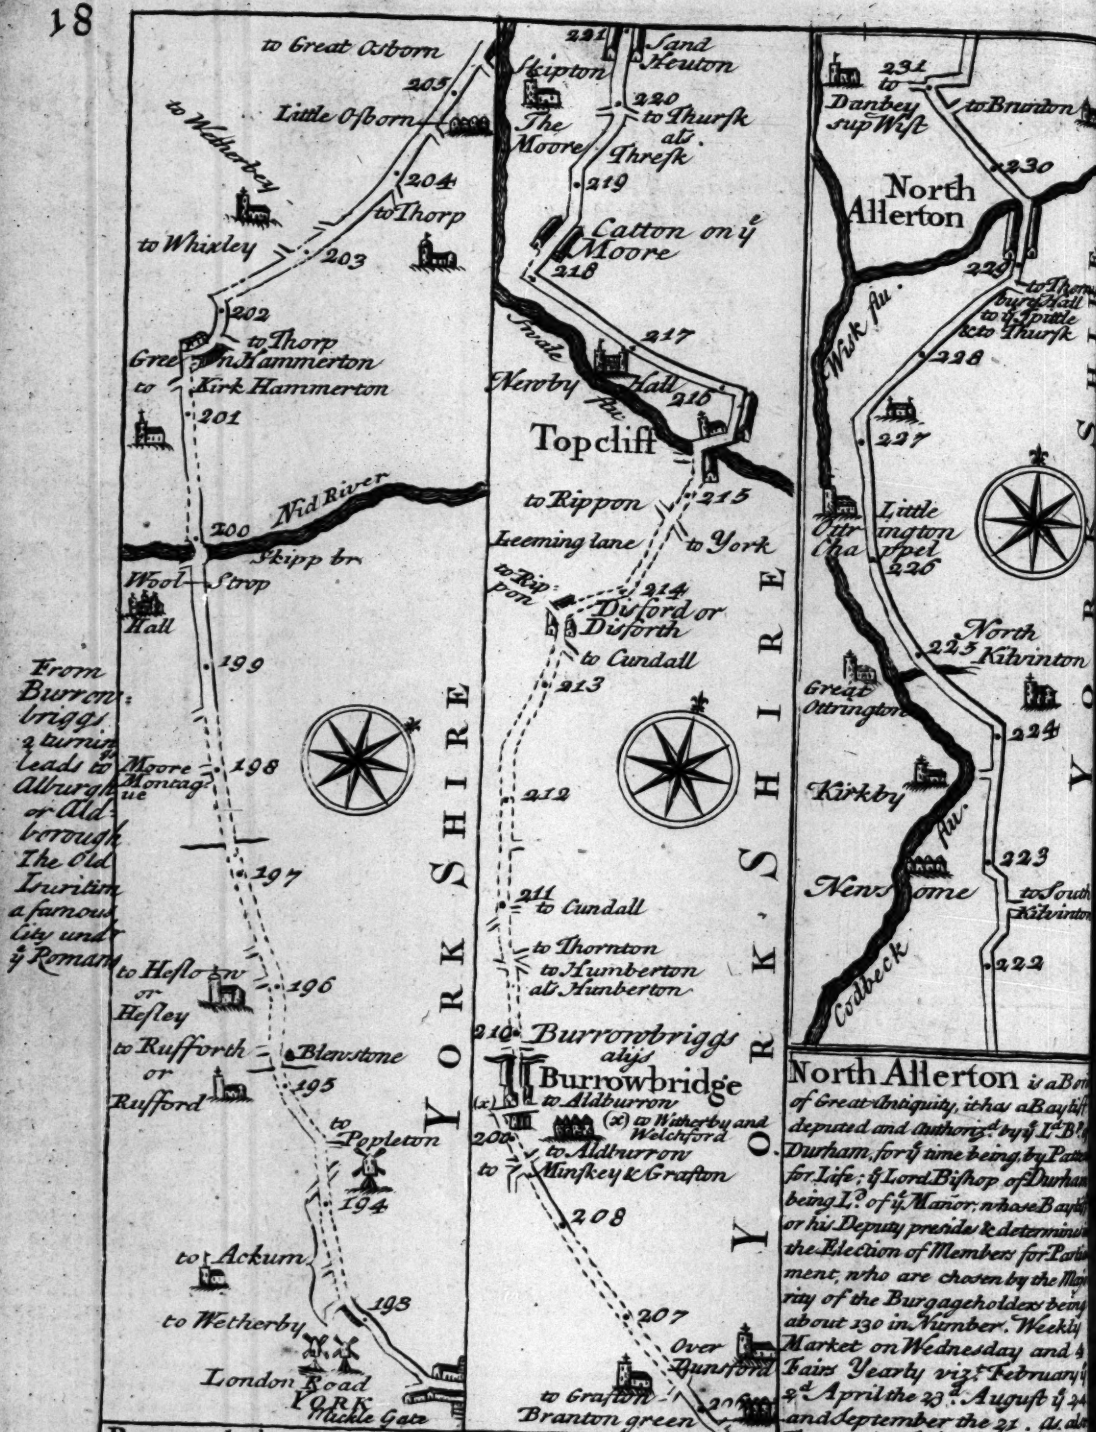 18
to Great Osborn
205
Little Osborn
to Wetherbey
204
to Thorp
to Whixley
203
202
to Thorp
Green Hammerton
to Kirk Hammerton
201
Nid River
200
Skipp br
Wool Strop
Hall
199
From
Burrow:
briggs
a turnin
leads to
Alburgh
or Ald-
borough
The Old
Isurium
a famous
City undr
ÿ Romans
198
Moore
Montag
ue
197
196
to Heslow
or
Hesley
to Rufforth
or
Rufford
Blewstone
195
to
Popleton
194
to Ackum
193
to Wetherby
London Road
YORK
Mickle Gate
YORK SHIRE
221
Sand
Heuton
Skipton
220
The
Moore
to Thursk
als.
Thresk
219
Catton on ÿ
Moore
218
Swale
flu
217
Newby Hall
216
Topcliff
215
to Rippon
Leeming lane
to York
to Rip-
pon
214
Disford or
Disforth
to Cundall
213
212
211
to Cundall
to Thornton
to Humberton
als Hunberton
210
Burrowbriggs
alijs
Burrowbridge
(x)
to Aldburrow
(x) to Witherby and
Welchford
209
to Aldburrow
to
Minskey & Grafton
208
207
Over
Dunsford
to Grafton
Branton green
206
YORK SHIRE
231
to
Danbey
sup Wisk
to Brunton
230
North
Allerton
229
to Thorn
bury Hall
to ÿ Spittle
& to Thursk
Wisk flu.
228
227
Little
Ottrington
Chappel
226
225
North
Kilvinton
Great
Ottrington
224
Kirkby
flu.
223
Newsome
to South
Kilvinton
222
Codbeck
YORK SHIRE
North Allerton is a Bor
of Great Antiquity, it has a Bayliff
deputed and Authoriz'd by ÿ Ld. Bp.
Durham, for ÿ time being, by Patte
for Life; ÿ Lord Bishop of Durham
being Ld. of ÿ Manor; whose Bayliff
or his Deputy preside & determine
the Election of Members for Parlia
ment, who are chosen by the Majo
rity of the Burgageholders being
about 130 in Number. Weekly
Market on Wednesday and 4
Fairs Yearly viz.t February ÿ
2d April the 23d August ÿ 24
and September the 21. as also